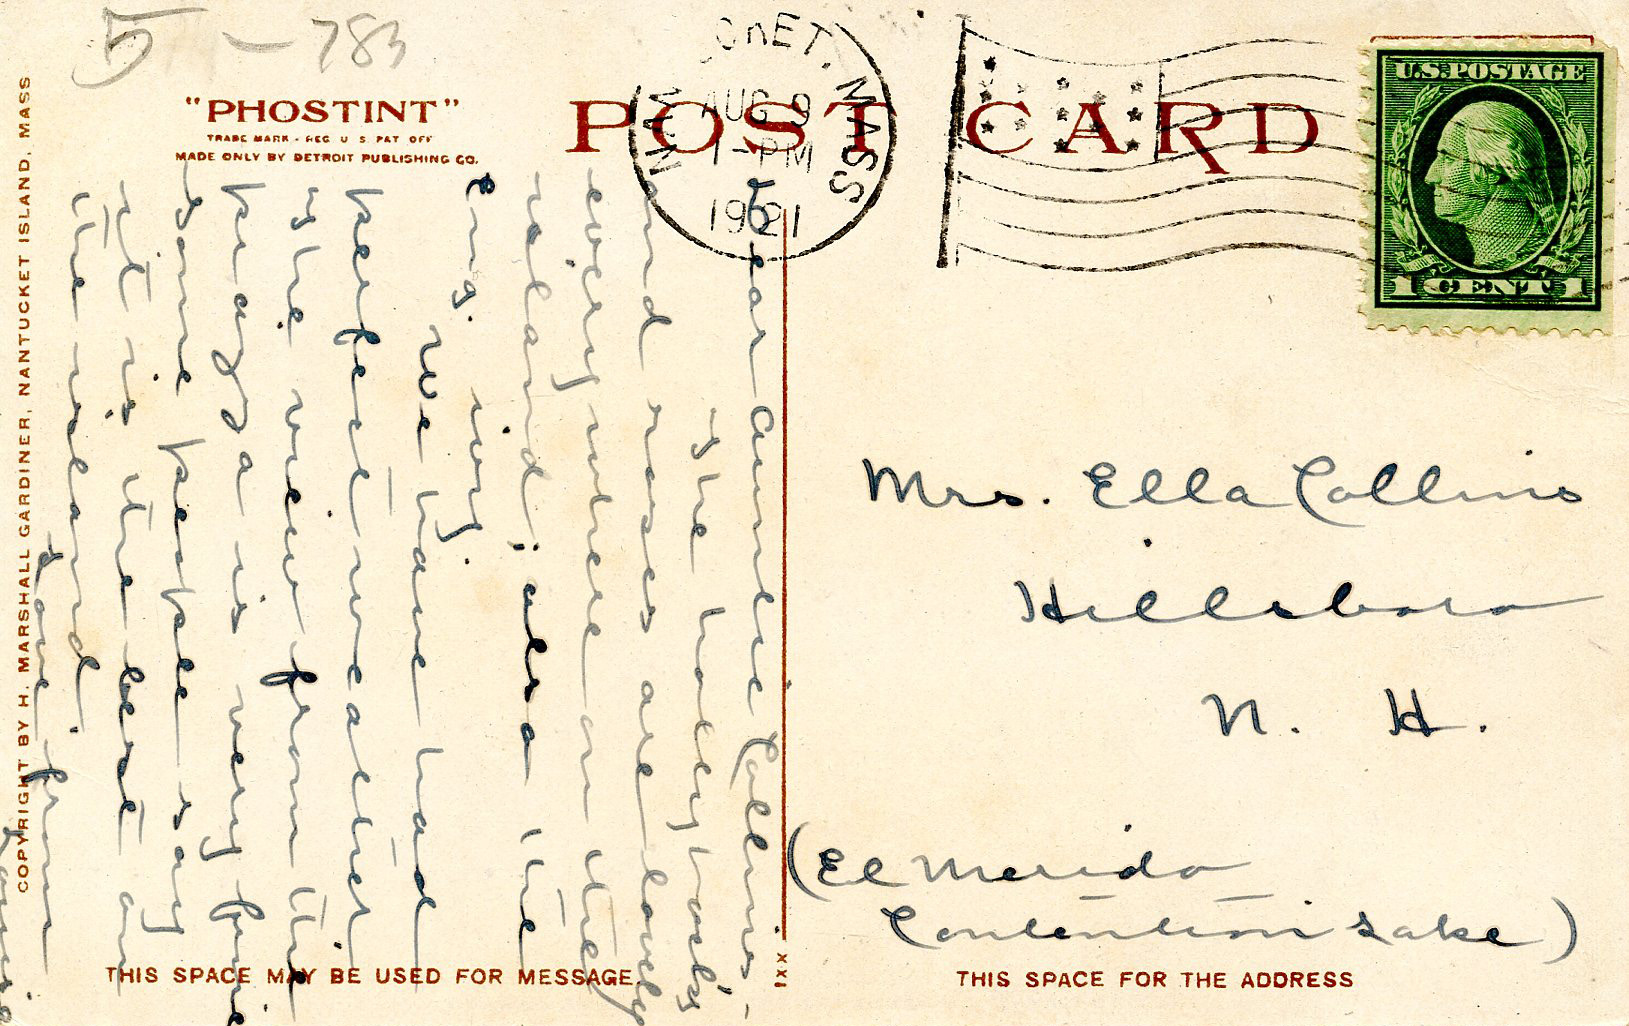 5 - 783
"PHOSTINT"
TRADE MARK - REG U S PAT OFF
MADE ONLY BY DETROIT PUBLISHING CO.
POST CARD
NANTUCKET, MASS
AUG 9
1-PM
1921
U.S. POSTAGE
1 CENT 1
Dear Auntie Collins -
The hollyhocks
and roses are lovely
everywhere on the
island; also the
Eng. ivy.
We have had
perfect weather
The view from the
piazza is very fine
Some people say
it is the best on
the island.
Love from
Mrs. Ella Collins
Hillsboro
N. H.
(El Merido
Contention Lake)
THIS SPACE MAY BE USED FOR MESSAGE.
XXI
THIS SPACE FOR THE ADDRESS
COPYRIGHT BY H. MARSHALL GARDINER, NANTUCKET ISLAND, MASS